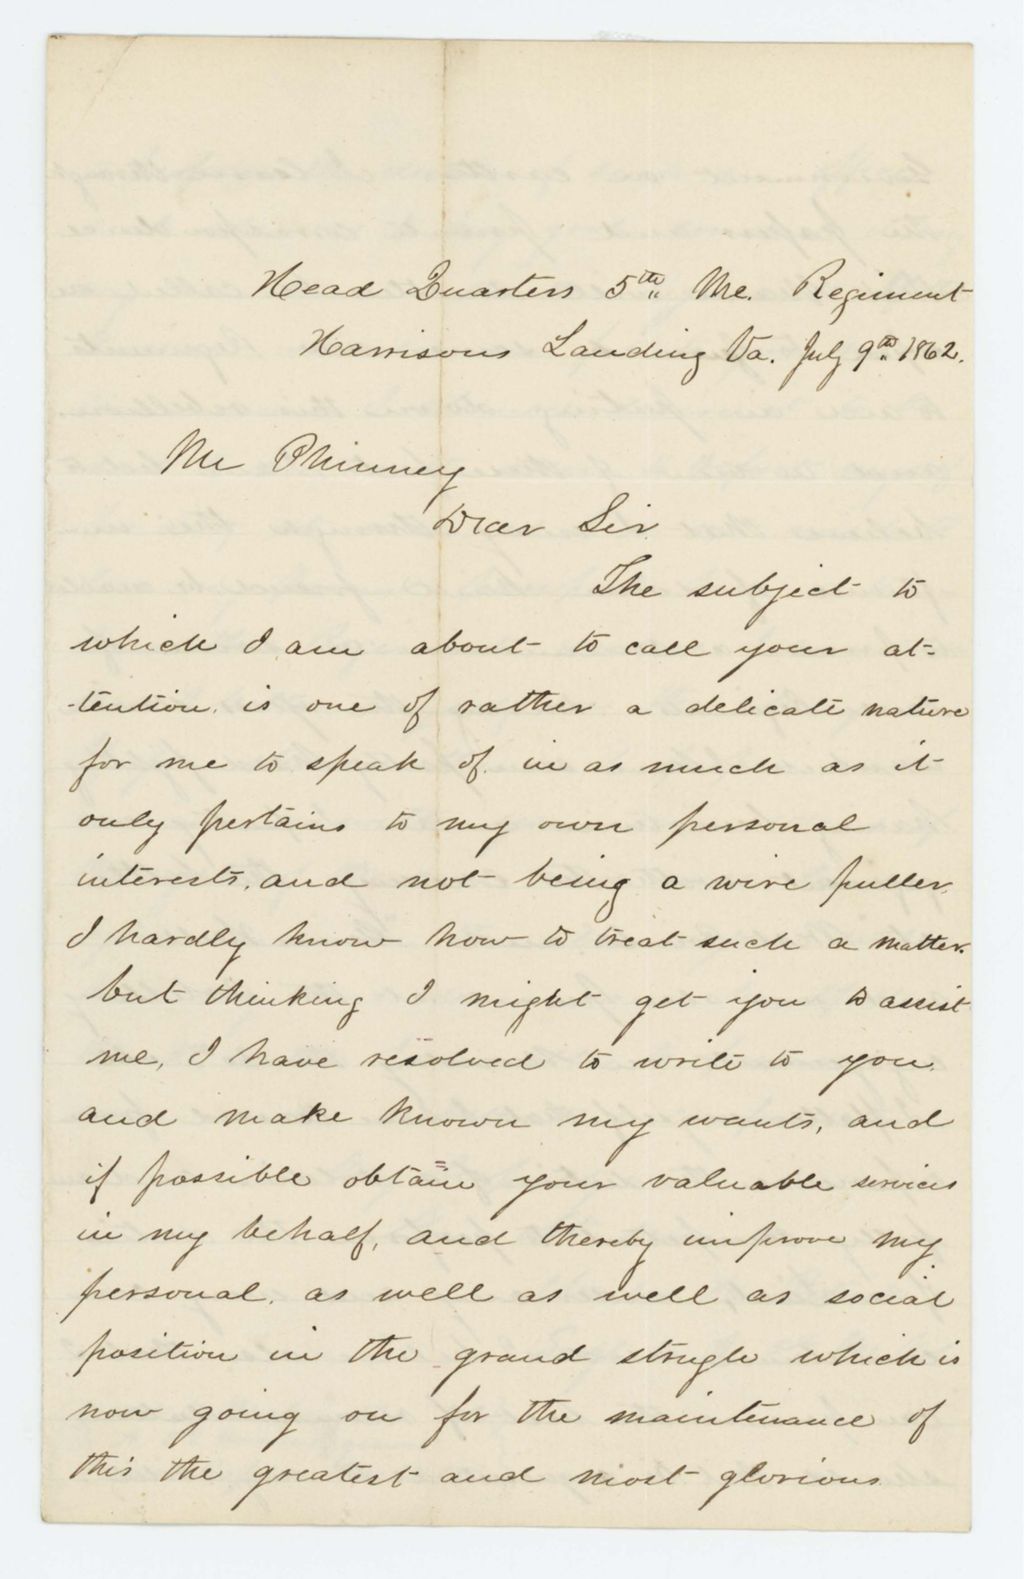 Head Quarters 5th Me. Regiment
Harrisons Landing Va. July 9th 1862.
Mr Phinney
Dear Sir
The subject to
which I am about to call your at-
-tention. is one of rather a delicate nature
for me to speak of. in as much as it
only pertains to my own personal
interests. and not being a wire puller,
I hardly know how to treat such a matter.
but thinking I might get you to assist
me, I have resolved to write to you.
and make known my wants, and
if possible obtain your valuable services
in my behalf, and thereby improve my
personal. as well as well as social
position in the grand strugle which is
now going on for the maintenance of
this the greatest and most glorious